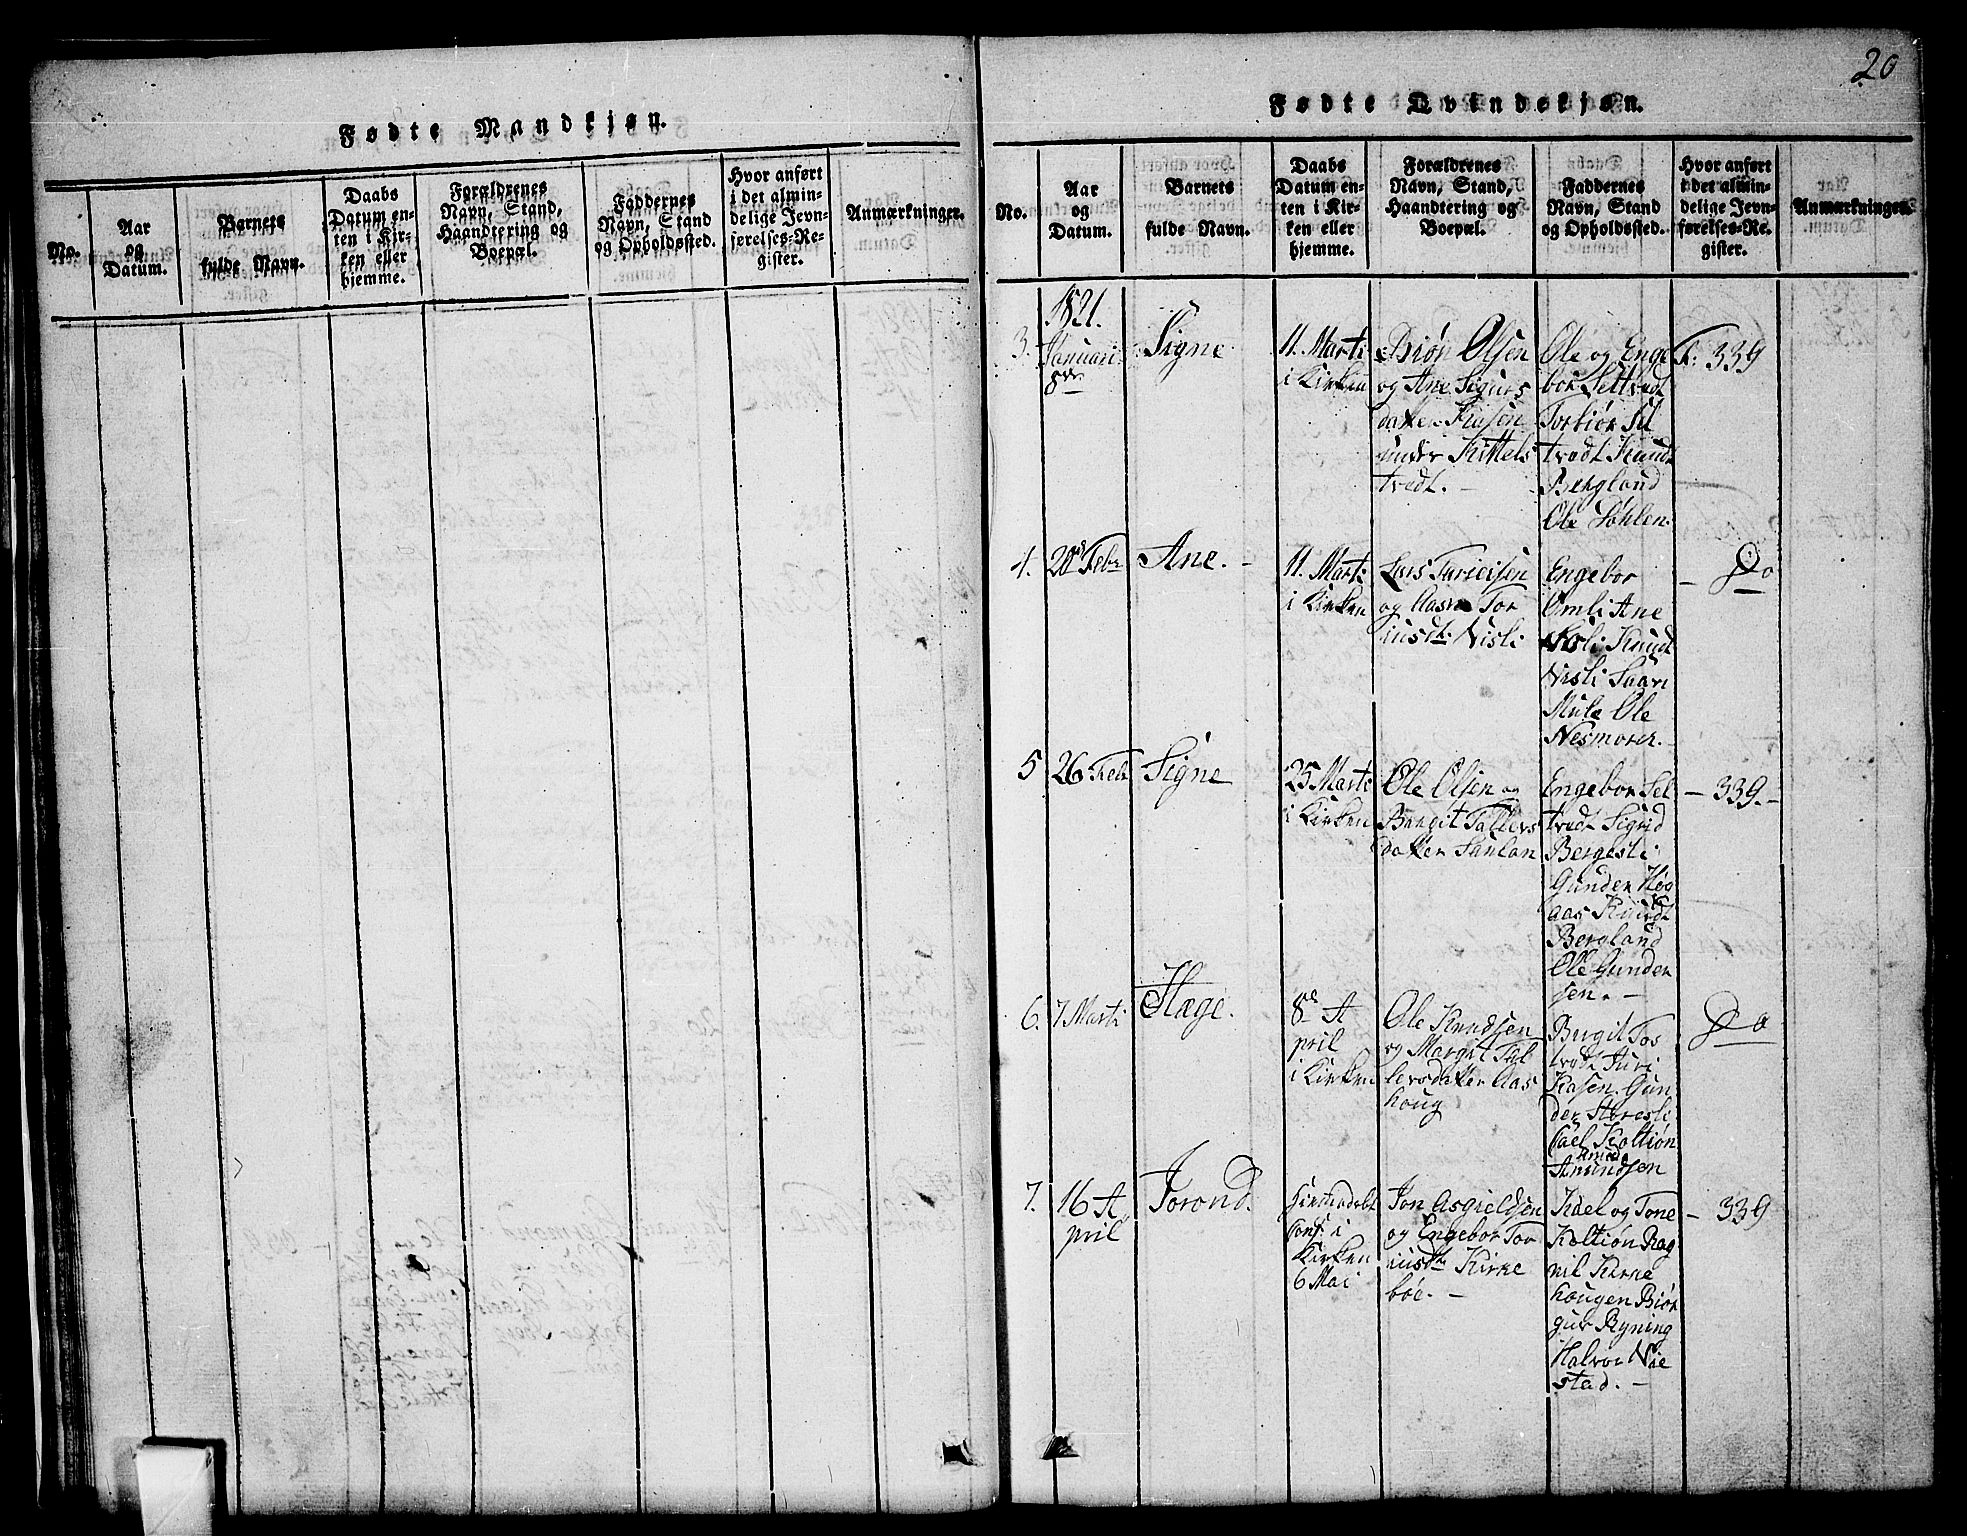 20
Fødte Mandkjøn.
No.
Aar
og
Datum.
Barnets
fulde Navn.
Daabs
Datum en-
ten i Kir-
ken eller
hjemme.
Forældrenes
Navn, Stand,
Haandtering og
Boepæl.
Faddernes
Navn, Stand
og Opholdssted.
Hvor anført
i det almin-
delige Jevn-
førelses-Re-
gister.
Anmærkninger.
Fødte Qvindekjøn.
No.
Aar
og
Datum.
Barnets
fulde Navn.
Daabs
Datum en-
ten i Kir-
ken eller
hjemme.
Forældrenes
Navn, Stand,
Haandtering og
Boepæl.
Faddernes
Navn, Stand
og Opholdssted.
Hvor anført
i det almin-
delige Jevn-
førelses-Re-
gister.
Anmærkninger.
3.
1821.
Januari
8de
Signe
11. Marti
i Kirken
Biøn Olsen
og Ane Sigurs
datter
under Kittels
tvedt. -
Ole og Enge
bor Seltvedt
Torbiør Sel
tvedt Knudt
Bergland
Ole
F: 339
4.
20de Febr
Ane. -
11. Marti
i Kirken
Lars
og Aasne Tor
iusdt: Nisli
Engebor
Omli Ane
Nisli Knudt
Nisli
Ole
- Do
5
26 Febr
Signe
25 Marti
i Kirken
Ole Olsen og
Bergit Tallevs
datter
Engebor Sel
tvedt Sigrid
Bergesli
Gunder Høg
aas Knudt
Bergland
Ole Gunder
sen. -
- 339. -
6.
7 Marti
Hæge.
8de A
pril
i Kirken
Ole Knudsen
og Margit Tal
levsdatter Aas
houg
Birgit Tos
tvedt Juri
Gun
der
Kael Koltiøn
Amund
Amundsen
Do
7.
16 A
pril
Jorond.
Hiemmedøbt
Conf: i
Kirken
6 Mai
Jon Asgieldsen
og Engebor Tor
iusdtr Kirke
bøe. -
Kael og Tone
Koltiøn Rag
nil Kirke
hougen Biør
gur Ryning
Halvor
stad. -
- 339